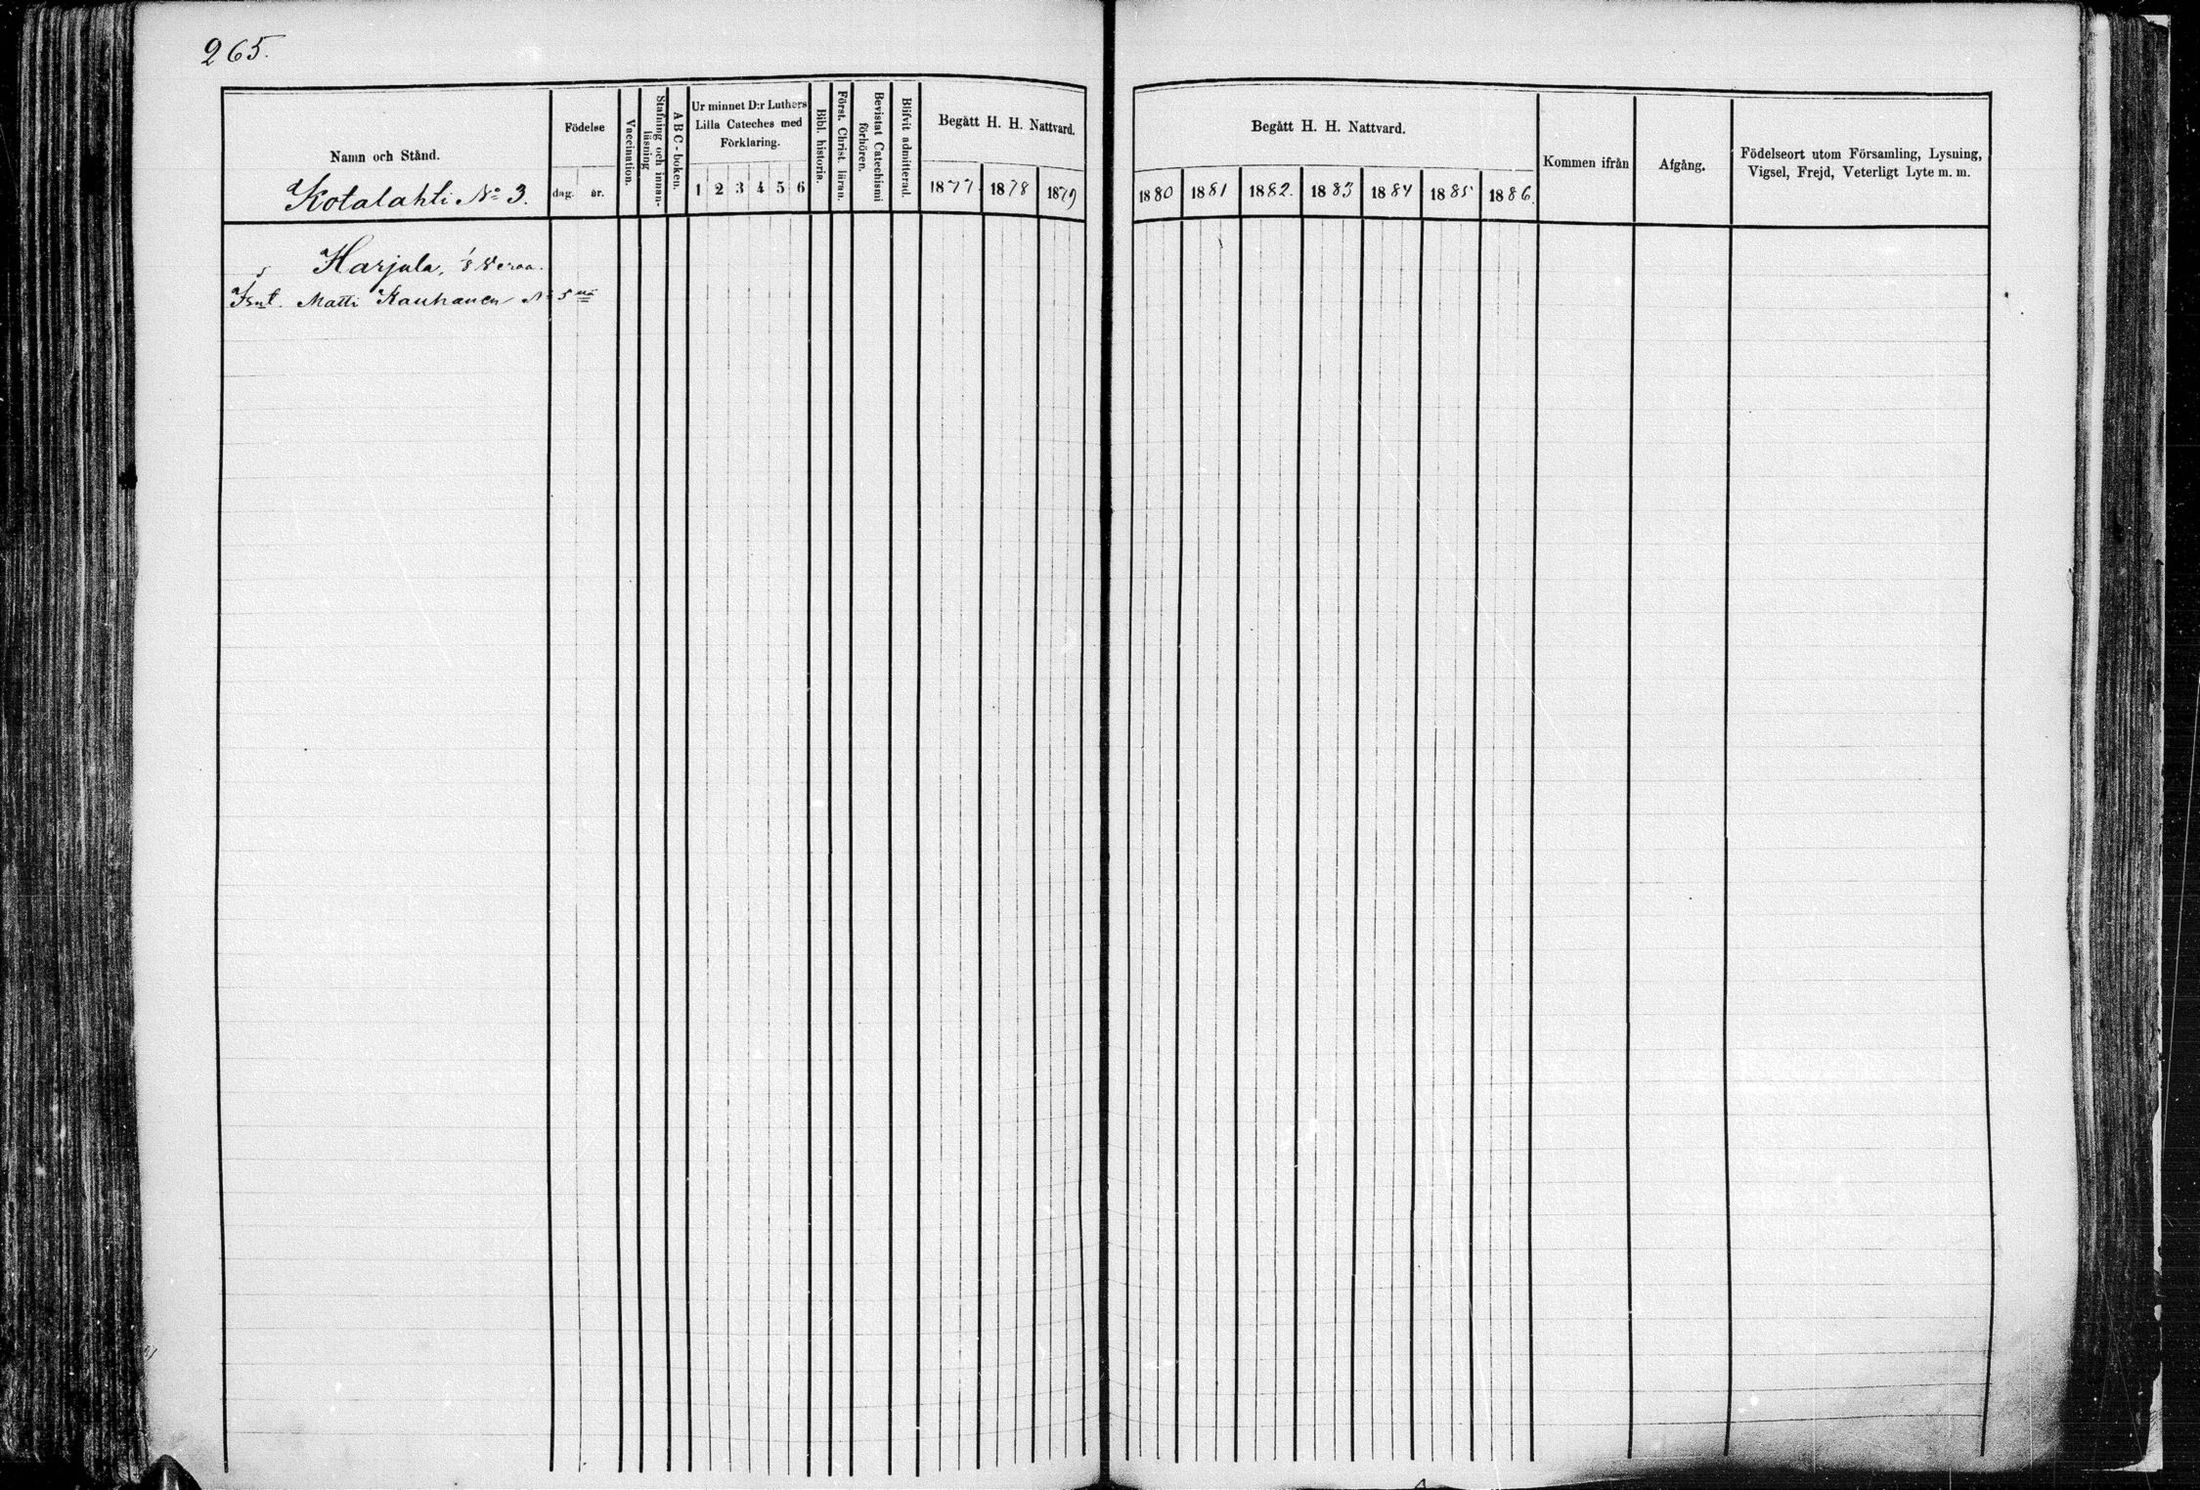 265.
Namn och Stånd.
Kotalahti No 3.
Födelse
dag. år.
Vaccination.
Stafning och innan-
läsning
ABC-boken.
Ur minnet D:r Luthers
Lilla Cateches med
Förklaring.
1 2 3 4 5 6
Bibl. historia.
Först. Christ. läran.
Bevistat Catechismi
förhören.
Blifvit admitterad.
Begått H. H. Nattvard.
1877 1878 1879
Begått H. H. Nattvard.
1880 1881 1882. 1883 1884 1885 1886.
Kommen ifrån
Afgång.
Födelseort utom Församling, Lysning,
Vigsel, Frejd, Veterligt Lyte m. m.
Harjula,
Matti Kauhanen N 5